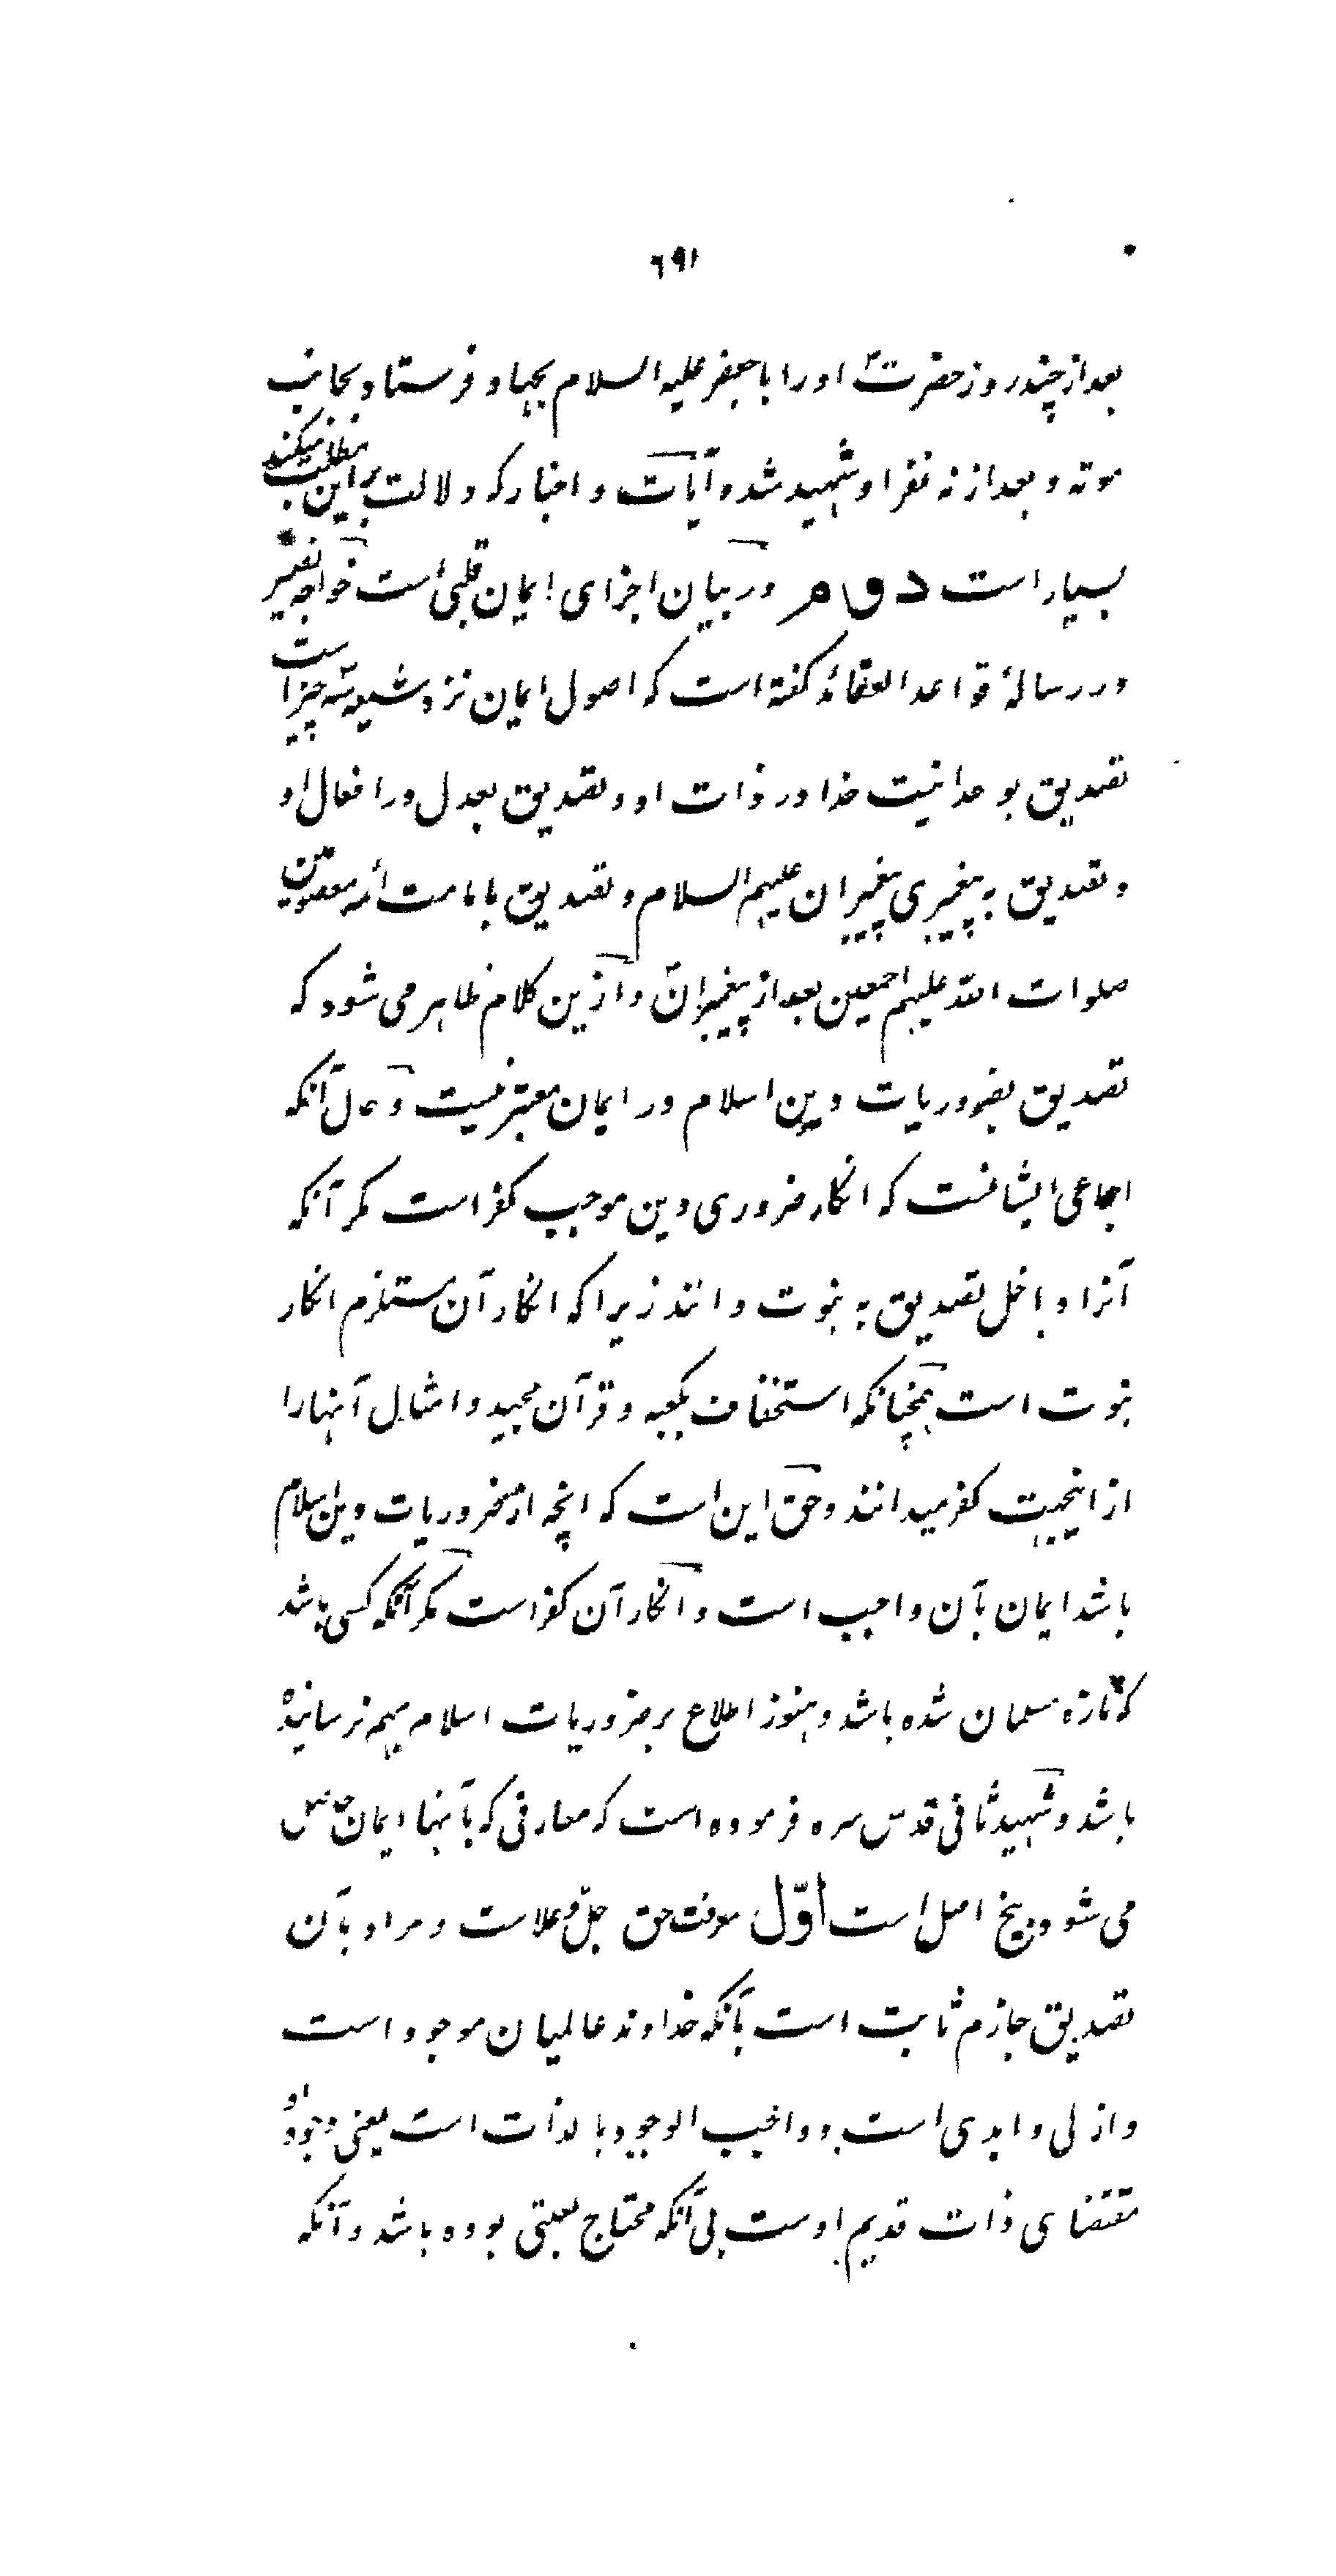 ٦٩١
بعد از چند روز حضرت ؐ او را با جعفر علیه السلام بجهاد فرستاد بجانب
موته و بعد از نه نفر او شهید شد و آیات و اخبار که دلالت بر این مطلب میکند
بسیار است دوم در بیان اجزای ایمان قلبی است خواجه نصیر
در رسالهٔ قواعد العقائد گفته است که اصول ایمان نزد شیعه سه چیز است
تصدیق بوحدانیت خدا در ذات او و تصدیق بعدل در افعال او
و تصدیق به پیغمبری پیغمبران علیهم السلام و تصدیق بامامت ائمه معصومین
صلوات الله علیهم اجمعین بعد از پیغمبران و ازین کلام ظاهر می شود که
تصدیق بضروریات دین اسلام در ایمان معتبر نیست و حال آنکه
اجماعی ایشانست که انکار ضروری دین موجب کفر است مگر آنکه
آنرا داخل تصدیق به نبوت دانند زیرا که انکار آن مستلزم انکار
نبوت است همچنانکه استخفاف بکعبه و قرآن مجید و امثال آنها را
از اینجهت کفر میدانند و حق این است که انچه از ضروریات دین اسلام
باشد ایمان بآن واجب است و انکار آن کفر است مگر آنکه کسی باشد
که تازه مسلمان شده باشد و هنوز اطلاع بر ضروریات اسلام بهم نرسانیده
باشد و شهید ثانی قدس سره فرموده است که معارفی که بآنها ایمان حاصل
می شود پنج اصل است اوّل معرفت حق جلّ و علاست و مراد بآن
تصدیق جازم ثابت است بآنکه خداوند عالمیان موجود است
و ازلی و ابدی است و واجب الوجود بالذات است یعنی وجود او
مقتضای ذات قدیم اوست بی آنکه محتاج بعلتی بوده باشد و آنکه